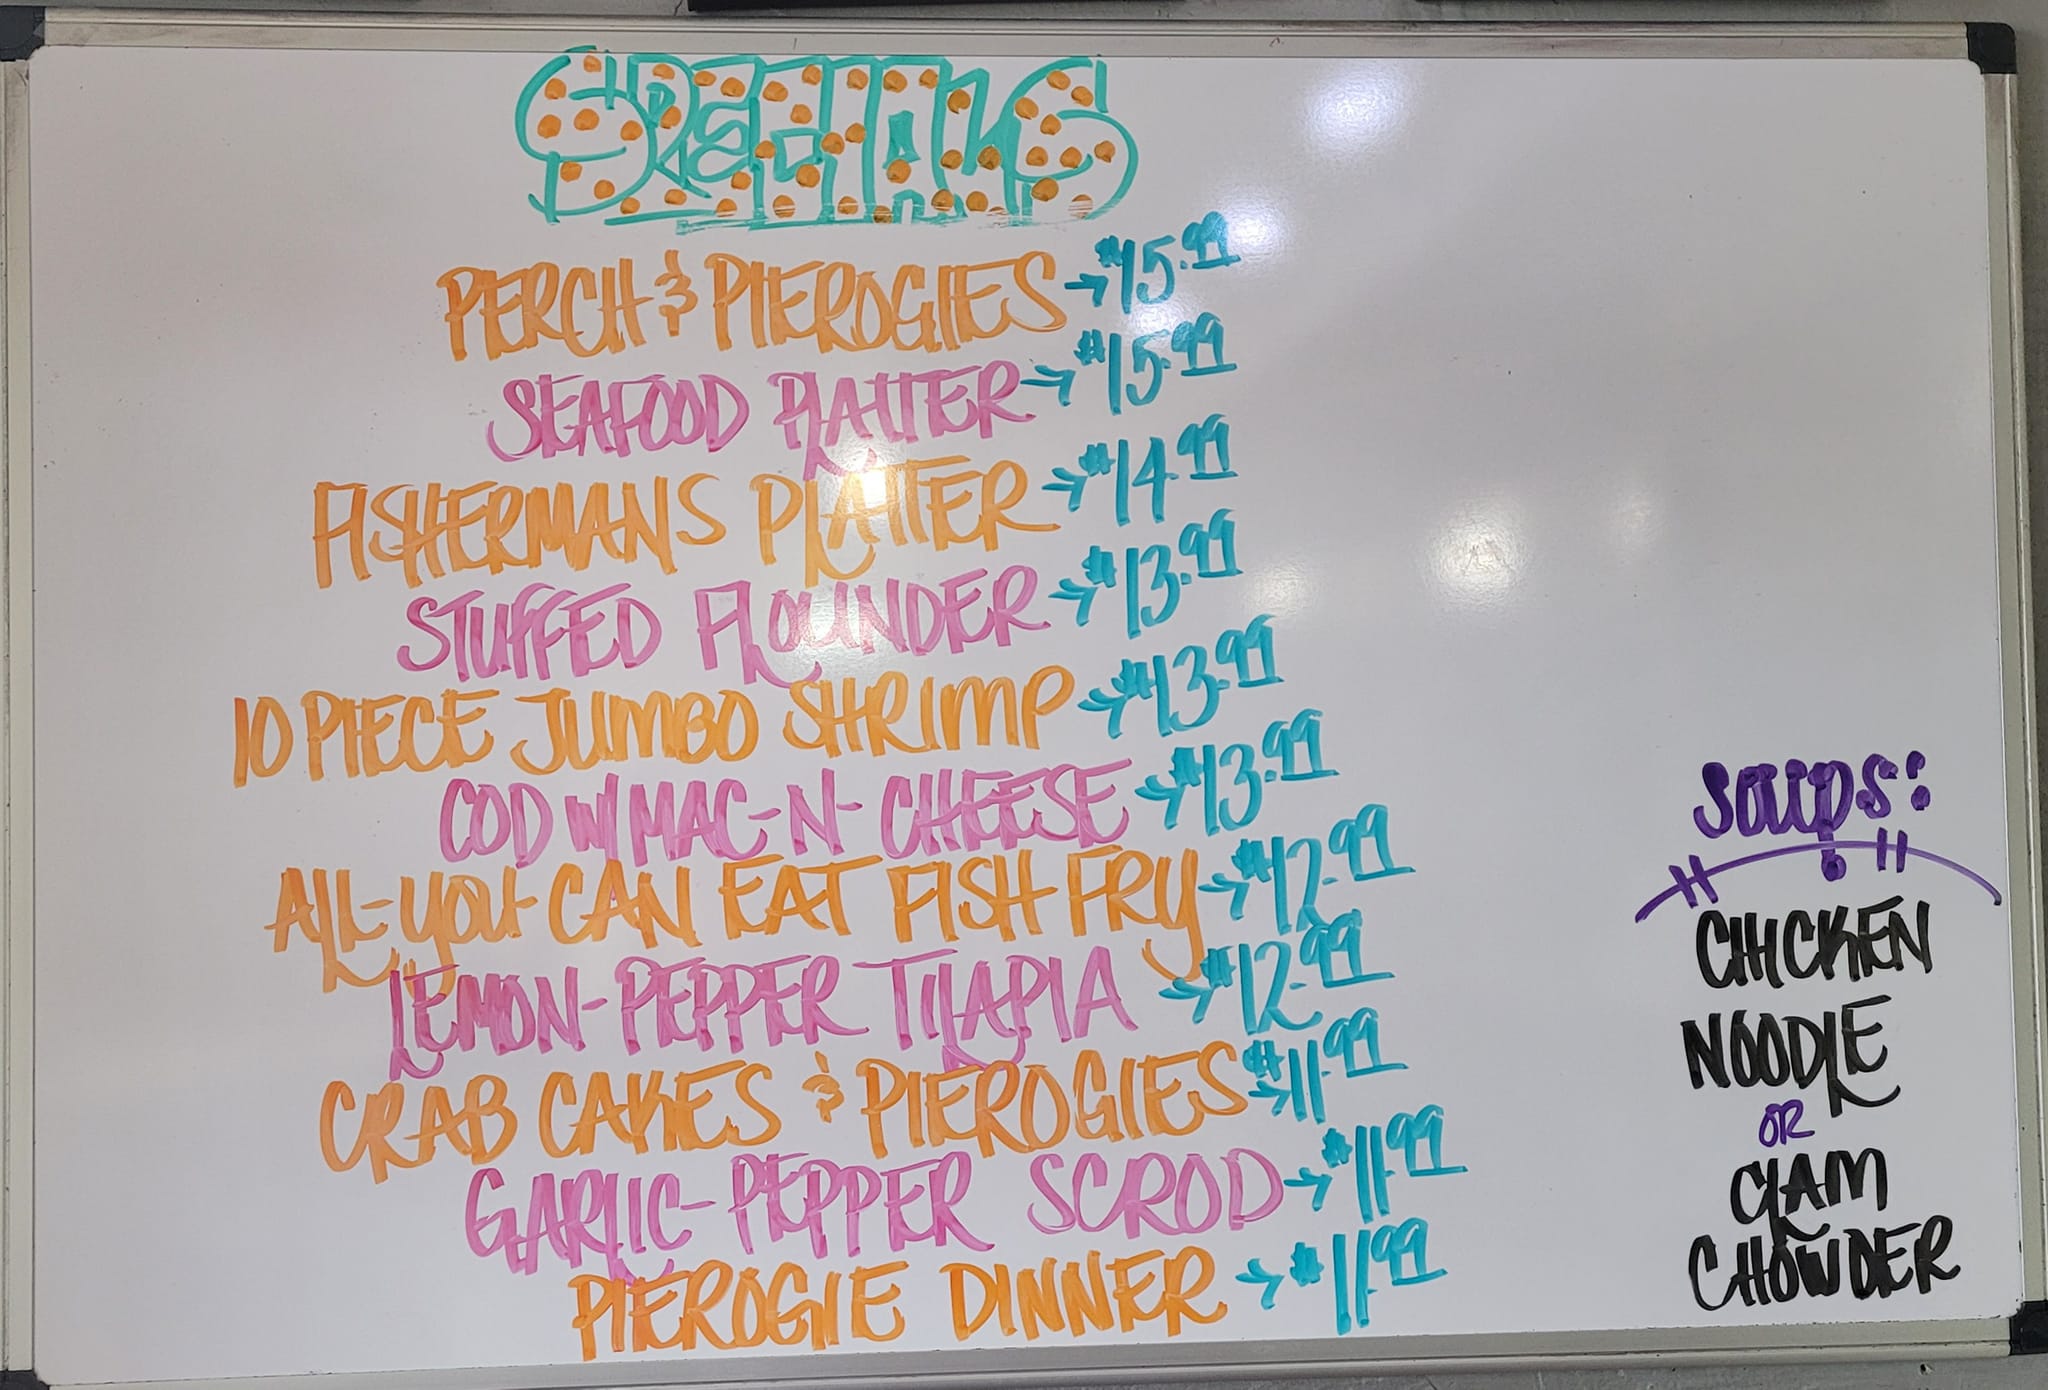 SPECIALS
PERCH & PIEROGIES → $15.99
SEAFOOD PLATTER → $15.99
FISHERMANS PLATTER → $14.99
STUFFED FLOUNDER → $13.99
10 PIECE JUMBO SHRIMP → $13.99
COD W/ MAC-N-CHEESE → $13.99
ALL-YOU-CAN EAT FISH FRY → $12.99
LEMON-PEPPER TILAPIA → $12.99
CRAB CAKES & PIEROGIES → $11.99
GARLIC-PEPPER SCROD → $11.99
PIEROGIE DINNER → $11.99
SOUPS:
CHICKEN
NOODLE
OR
CLAM
CHOWDER